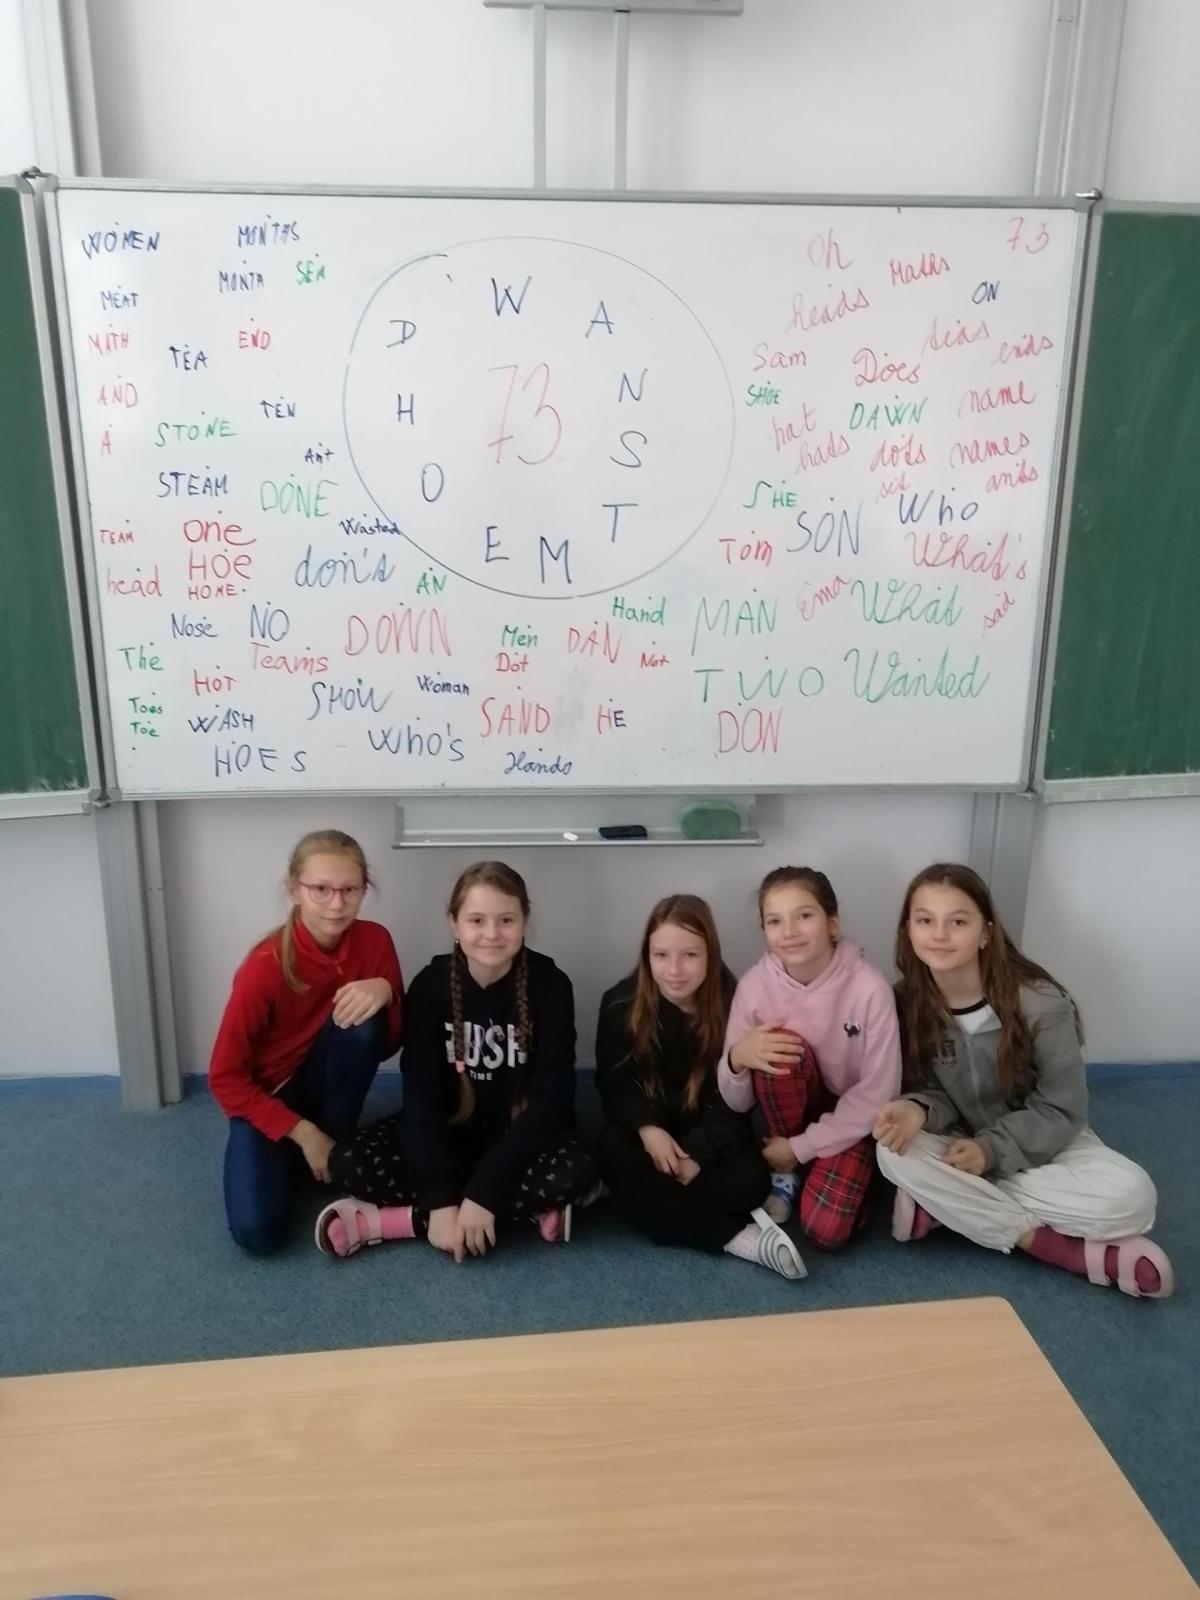 WOMEN MONTHS
MEAT MONTH SEA
MATH TEA END
AND TEN
A STONE Ant
STEAM DONE
TEAM one Wasted
head HOE don's AN
HOME
Nose NO DOWN
The Teams
HOT SHOW Woman
Toes WASH
Toe Who's
HOES
W
D A
H 73 N
S
O T
E M
73
Oh Maths
heads ON
teas
Sam Does ends
SHOE name
hat DAWN
hads dots names
SHE sit ants
SON Who
Tom What's
Hand MAN Ema What sad
Men DAN Not
Dot TWO Wanted
SAND HE DON
Hands
RUSH
TIME